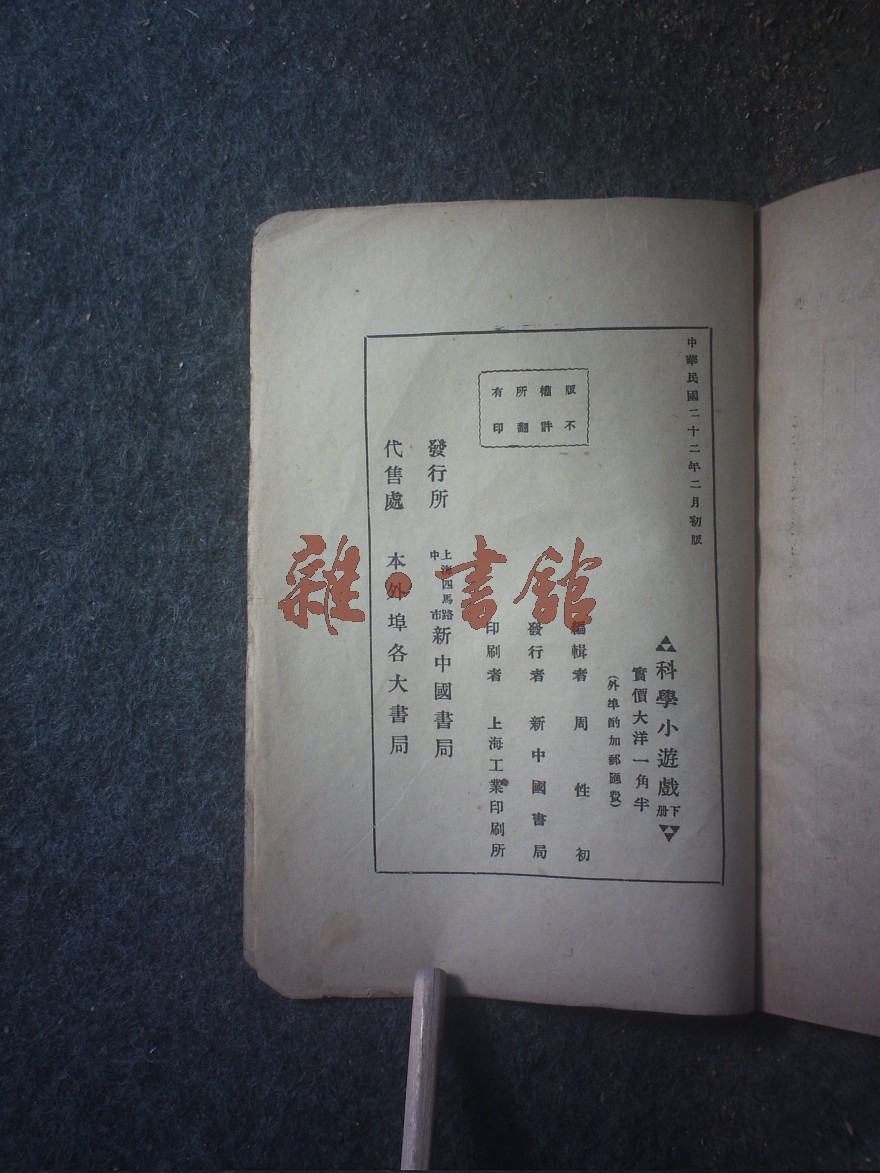 中華民國二十二年二月初版
科學小遊戲下册
實價大洋一角半
(外埠酌加郵匯費)
版權所有
不許翻印
編輯者 周性初
發行者 新中國書局
印刷者 上海工業印刷所
發行所 上海四馬路中市 新中國書局
代售處 本外埠各大書局
雜·書館